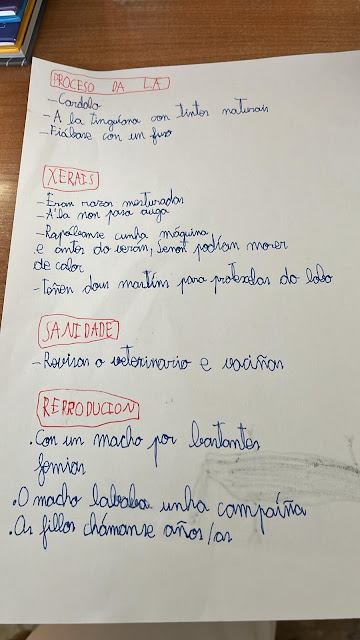 PROCESO DA LA
- Cardalo
- A la tinguiana con tintes naturais
- Fiábase con un fuso
XERAIS
- Eran razas mesturadas
- A la non pasa auga
- Rapábanse cunha máquina
e antes do verán, senon podían morer
de calor
- Teñen dous mastíns para protexelas do lobo
SANIDADE
- Revisas o veterinario e vaciñas
REPRODUCION
. Con un macho por bastantes
femias
. O macho lababa unha campaíña
. As fillos chámanse años/as